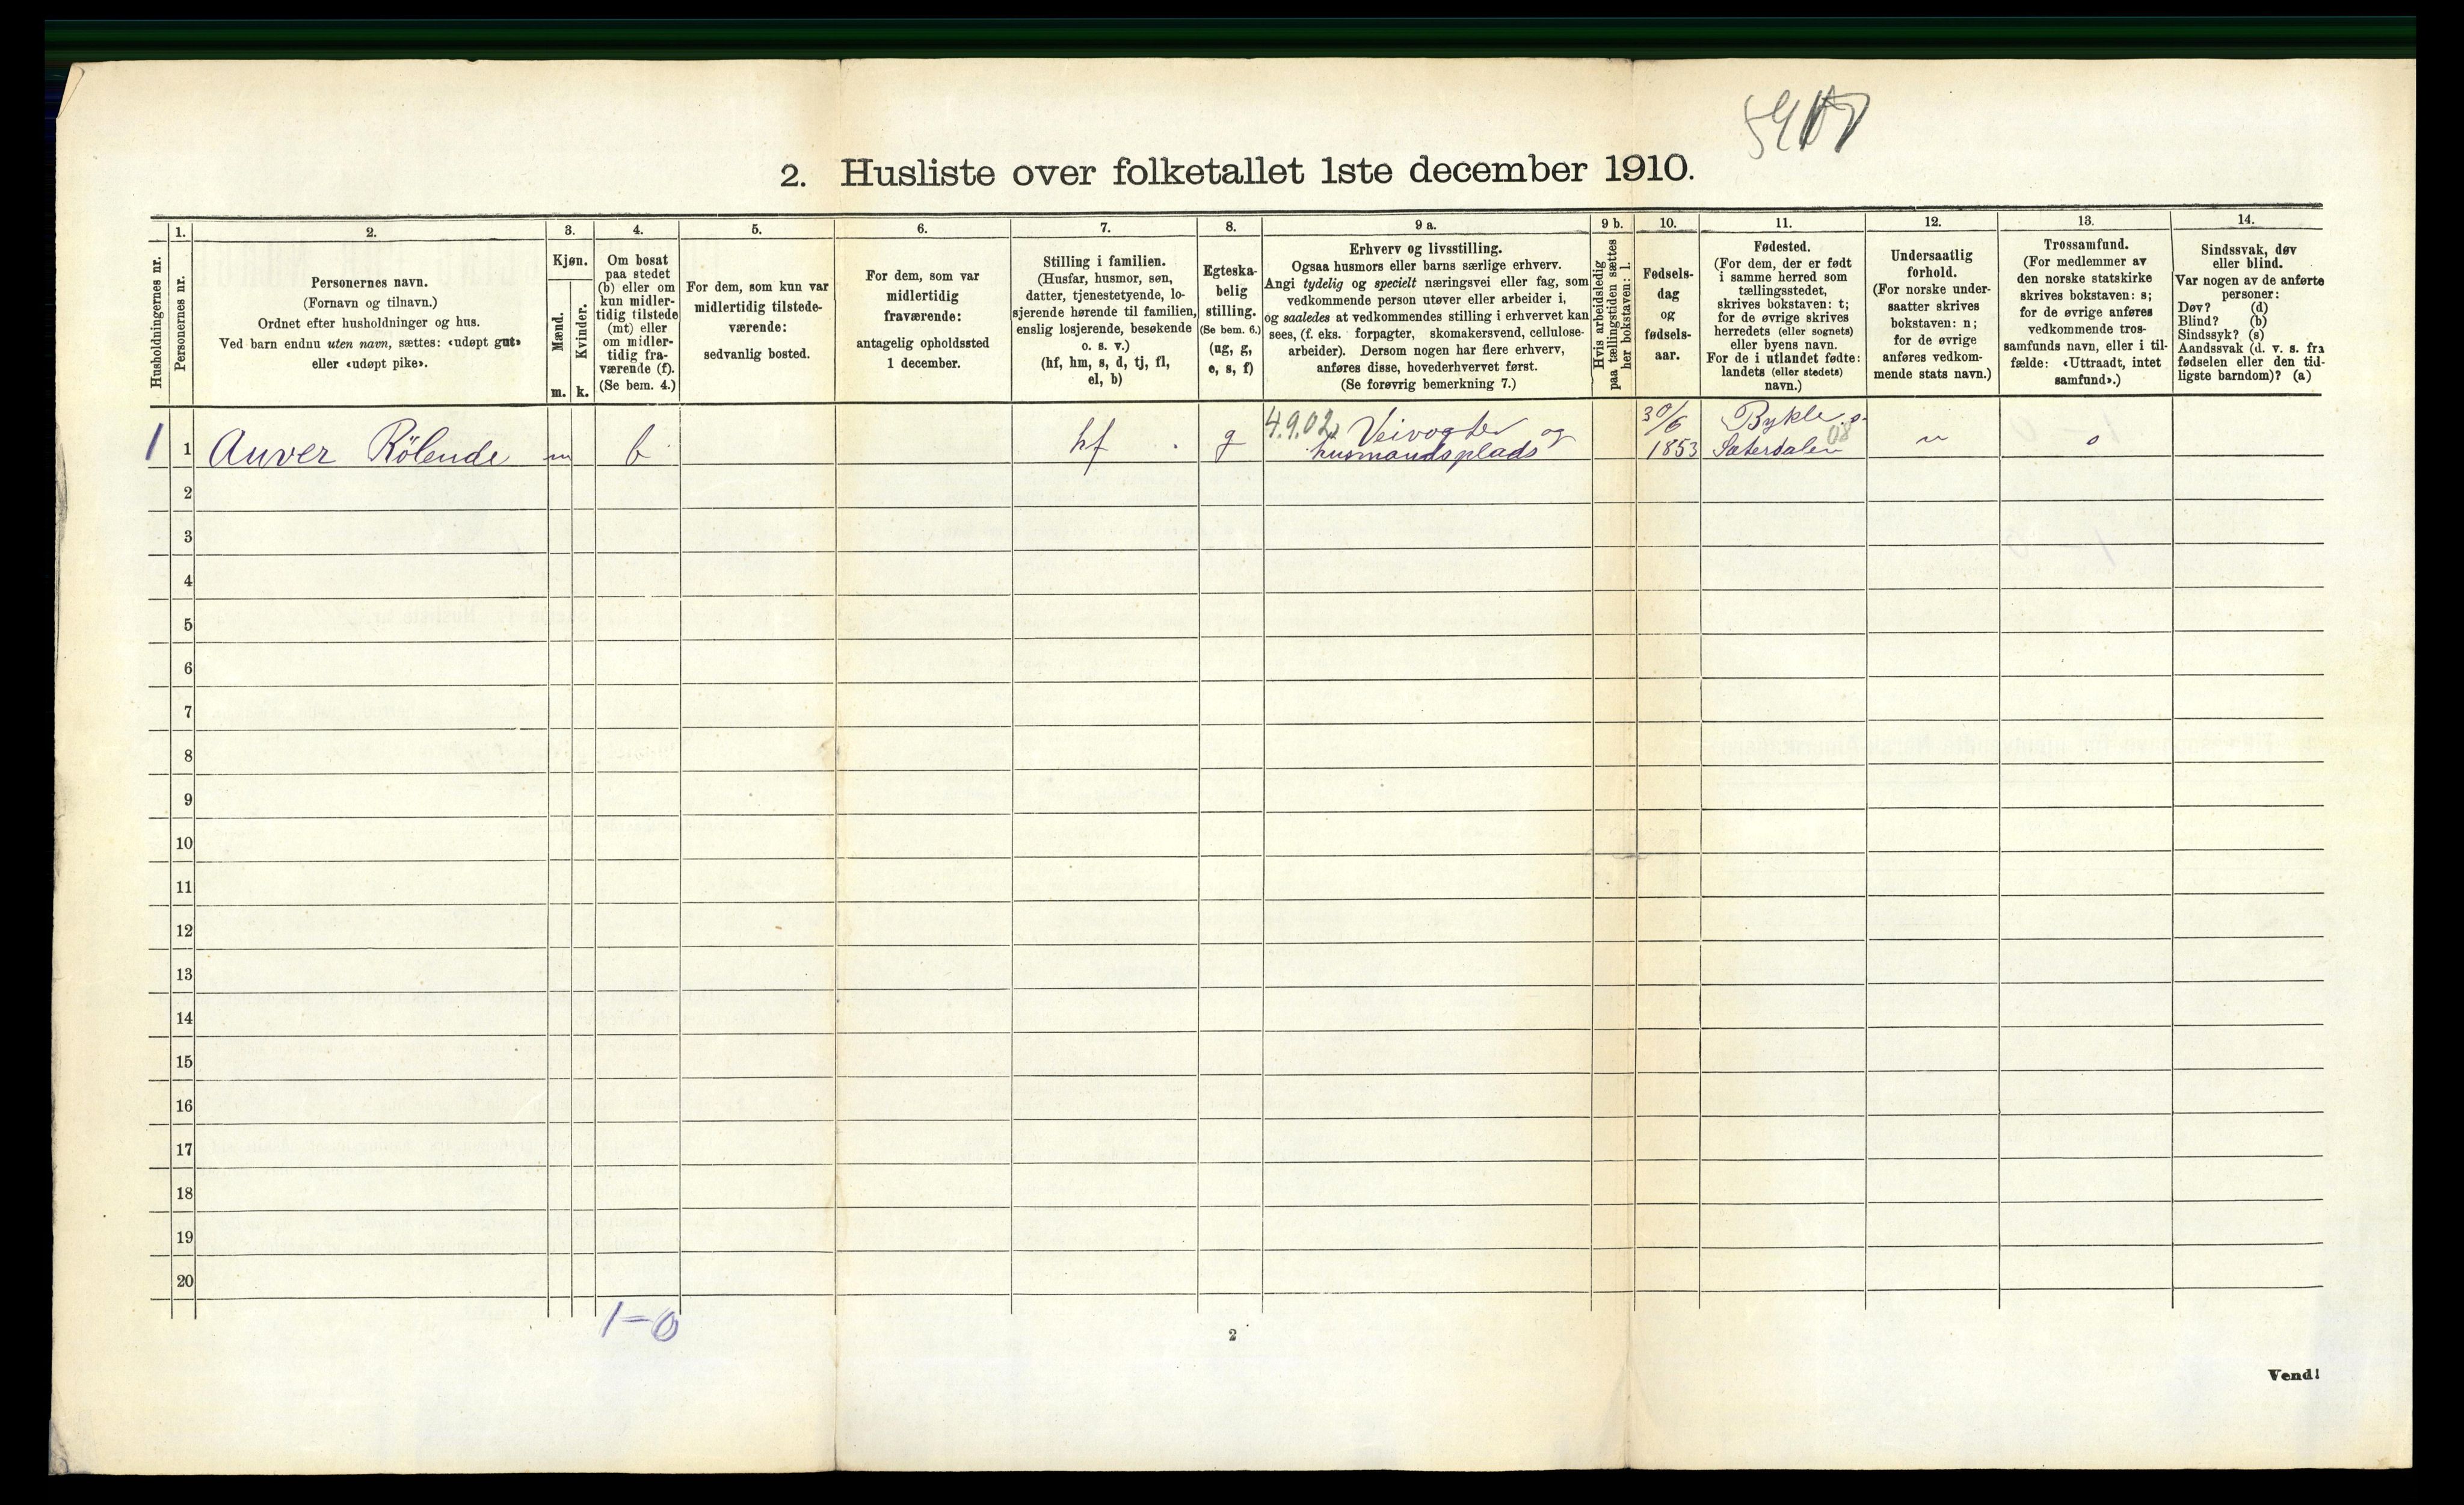 2. Husliste over folketallet 1ste december 1910.
Husholdningernes nr.
1.
Personernes nr.
2.
Personernes navn.
(Fornavn og tilnavn.)
Ordnet efter husholdninger og hus.
Ved barn endnu uten navn, sættes: «udøpt gut»
eller «udøpt pike».
3.
Kjøn.
Mænd.
Kvinder.
m. k.
4.
Om bosat
paa stedet
(b) eller om
kun midler-
tidig tilstede
(mt) eller
om midler-
tidig fra-
værende (f).
(Se bem. 4.)
5.
For dem, som kun var
midlertidig tilstede-
værende:
sedvanlig bosted.
6.
For dem, som var
midlertidig
fraværende:
antagelig opholdssted
1 december.
7.
Stilling i familien.
(Husfar, husmor, søn,
datter, tjenestetyende, lo-
sjerende hørende til familien,
enslig losjerende, besøkende
o. s. v.)
(hf, hm, s, d, tj, fl,
el, b)
8.
Egteska-
belig
stilling.
(Se bem. 6.)
(ug, g,
e, s, f)
9 a.
Erhverv og livsstilling.
Ogsaa husmors eller barns særlige erhverv.
Angi tydelig og specielt næringsvei eller fag, som
vedkommende person utøver eller arbeider i,
og saaledes at vedkommendes stilling i erhvervet kan
sees, (f. eks. forpagter, skomakersvend, cellulose-
arbeider). Dersom nogen har flere erhverv,
anføres disse, hovederhvervet først.
(Se forøvrig bemerkning 7.)
9 b.
Hvis arbeidsledig
paa tællingstiden sættes
her bokstaven: l.
10.
Fødsels-
dag
og
fødsels-
aar.
11.
Fødested.
(For dem, der er født
i samme herred som
tællingsstedet,
skrives bokstaven: t;
for de øvrige skrives
herredets (eller sognets)
eller byens navn.
For de i utlandet fødte:
landets (eller stedets)
navn.)
12.
Undersaatlig
forhold.
(For norske under-
saatter skrives
bokstaven: n;
for de øvrige
anføres vedkom-
mende stats navn.)
13.
Trossamfund.
(For medlemmer av
den norske statskirke
skrives bokstaven: s;
for de øvrige anføres
vedkommende tros-
samfunds navn, eller i til-
fælde: «Uttraadt, intet
samfund».)
14.
Sindssvak, døv
eller blind.
Var nogen av de anførte
personer:
Døv? (d)
Blind? (b)
Sindssyk? (s)
Aandssvak (d. v. s. fra
fødselen eller den tid-
ligste barndom)? (a)
1 1 Auver Rölende m b hf g
4.9.02 Veivogter og
husmandsplads
30/6
1853
Bykle s.
Sæterdalen 08
n s
2
3
4
5
6
7
8
9
10
11
12
13
14
15
16
17
18
19
20
1–0
2
Vend!